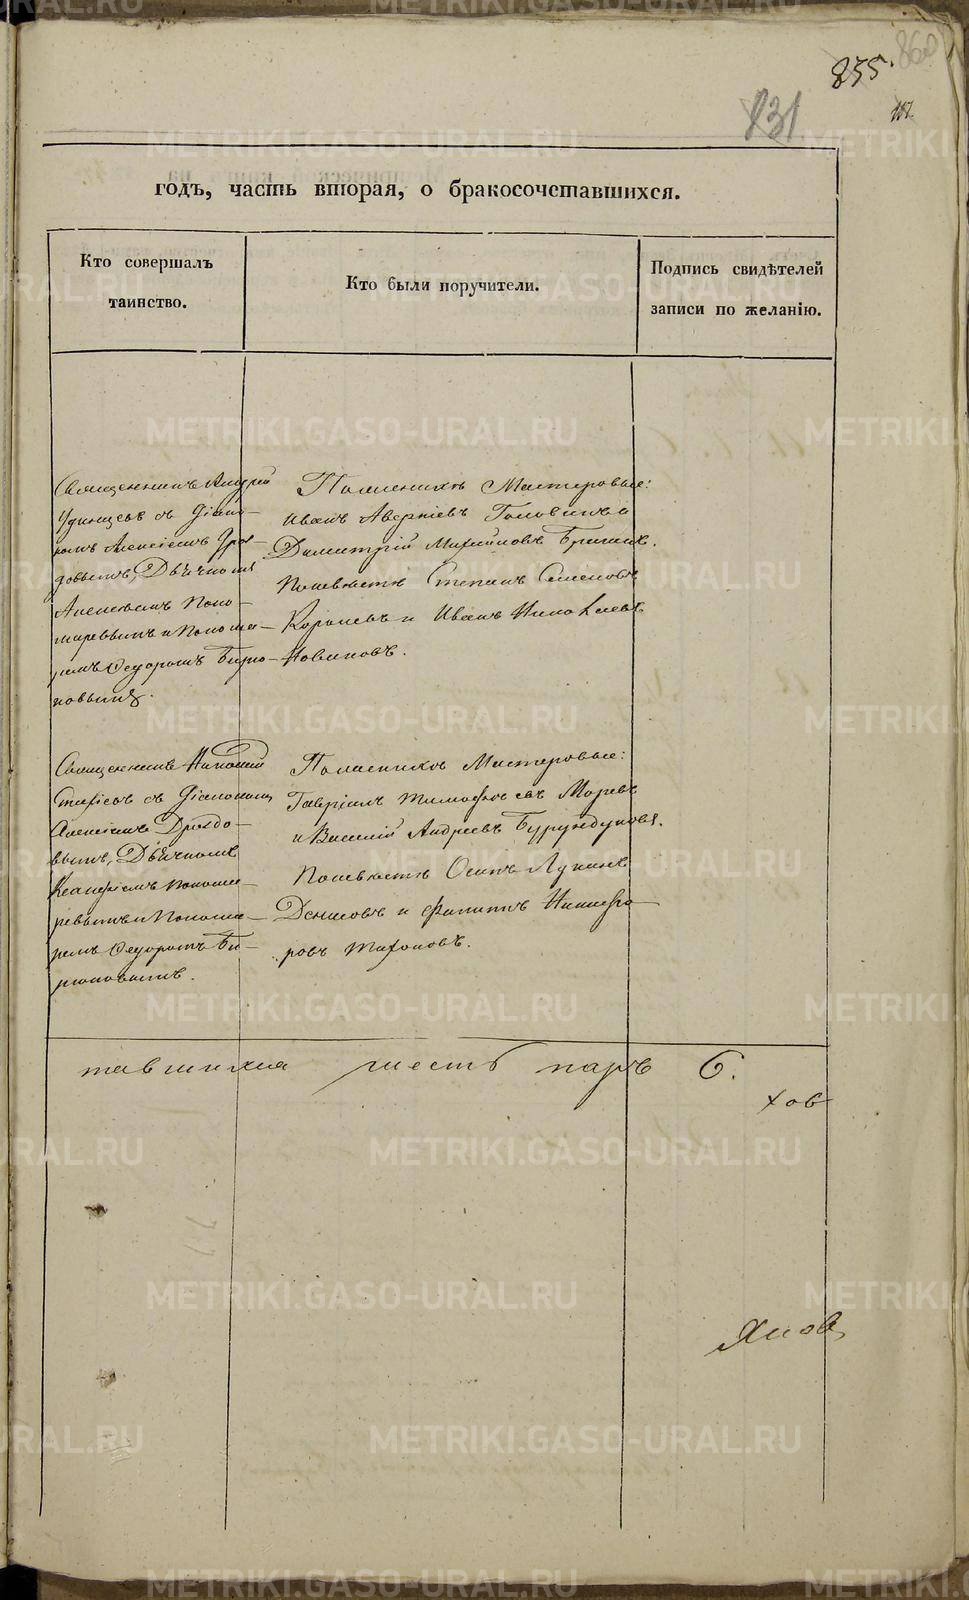 855.
860
831
187.
годъ, часть вторая, о бракосочетавшихся.
Кто совершалъ
таинство.
Кто были поручители.
Подпись свидѣтелей
записи по желанію.
Священникъ Андрей
Удинцевъ съ Діако-
номъ Алексіемъ Дроз-
довымъ, Дьячкомъ
Поно-
маревымъ и Понома-
ремъ Ѳедоромъ Бирю-
ковымъ.
По женихѣ Мастеровые:
Иванъ Аверкіевъ Головинъ и
Димитрій Михайловъ
По невѣстѣ Степанъ Семеновъ
Королевъ и Иванъ Николаевъ
Новиковъ.
Священникъ Николай
съ Діакономъ
Алексіемъ Дроздо-
вымъ, Дьячкомъ
Понома-
ревымъ и Понома-
ремъ Ѳедоромъ Би-
рюковымъ.
По женихѣ Мастеровые:
Гавріилъ Тимофѣевъ Моревъ
и Василій Андреевъ Бурундуковъ.
По невѣстѣ Осипъ Лукинъ
Денисовъ и Филиппъ Никифо-
ровъ Тихоновъ.
тавшихся шесть паръ 6.
ховъ
METRIKI.GASO-URAL.RU